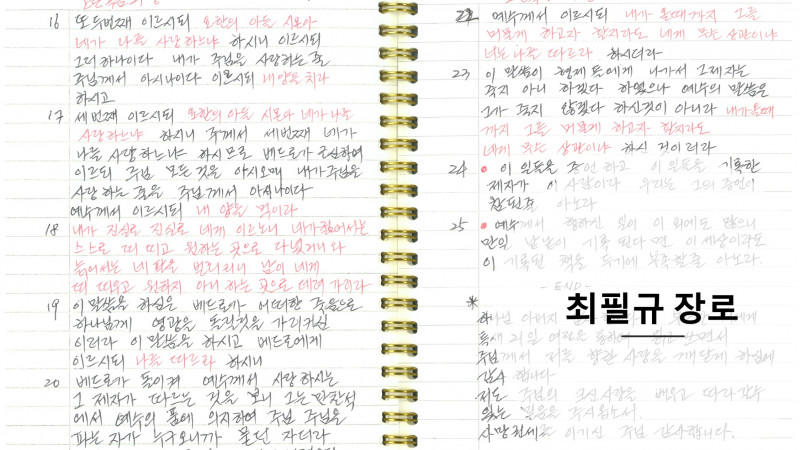 16 또 두번째 이르시되 요한의 아들 시몬아
네가 나를 사랑하느냐 하시니 이르시되
그러하나이다 내가 주님을 사랑하는 줄
주님께서 아시나이다 이르시되 내 양을 치라
하시고
17 세번째 이르시되 요한의 아들 시몬아 네가 나를
사랑하느냐 하시니 주께서 세번째 네가
나를 사랑하느냐 하시므로 베드로가 근심하여
이르되 주님 모든 것을 아시오매 내가 주님을
사랑하는 줄을 주님께서 아시나이다
예수께서 이르시되 내 양을 먹이라
18 내가 진실로 진실로 네게 이르노니 네가 젊어서는
스스로 띠 띠고 원하는 곳으로 다녔거니와
늙어서는 네 팔을 벌리리니 남이 네게
띠 띠우고 원하지 아니하는 곳으로 데려가리라
19 이 말씀을 하심은 베드로가 어떠한 죽음으로
하나님께 영광을 돌릴것을 가리키심
이러라 이 말씀을 하시고 베드로에게
이르시되 나를 따르라 하시니
20 베드로가 돌이켜 예수께서 사랑하시는
그 제자가 따르는 것을 보니 그는 만찬석
에서 예수의 품에 의지하여 주님 주님을
파는 자가 누구오니까 묻던 자더라
22 예수께서 이르시되 내가 올때까지 그를
머물게 하고자 할지라도 네게 무슨 상관이냐
너는 나를 따르라 하시더라
23 이 말씀이 형제들에게 나가서 그 제자는
죽지 아니 하겠다 하였으나 예수의 말씀은
그가 죽지 않겠다 하신것이 아니라 내가 올때
까지 그를 머물게 하고자 할지라도
네게 무슨 상관이냐 하신 것이러라
24 이 일들을 증언하고 이 일들을 기록한
제자가 이 사람이라 우리는 그의 증언이
참된줄 아노라
25 예수께서 행하신 일이 이 외에도 많으니
만일 낱낱이 기록된다면 이 세상이라도
이 기록된 책을 두기에 부족할줄 아노라.
-END-
최필규 장로
* 하나님 아버지
특새 21일 여정을 통하여 쓰면서
주님께서 저를 향한 사랑을 깨닫게 하심에
감사 합니다
저도 주님의 크신 사랑을 배우고 따라갈수
있는 믿음을 주시옵소서.
사망권세를 이기신 주님 감사합니다.